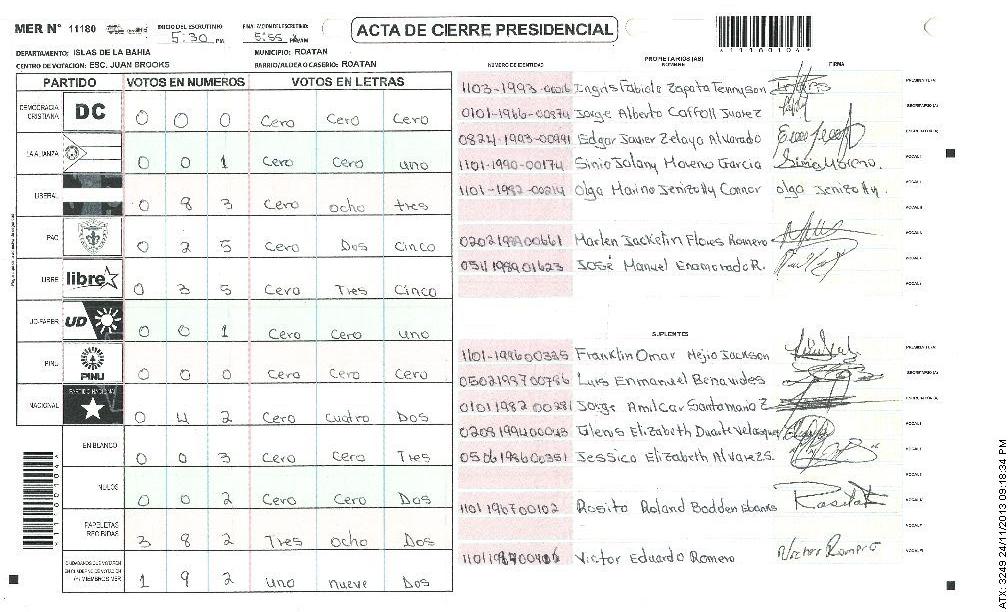 MER N° 11180 INICIO DEL ESCRUTINIO 5:30 PM FINALIZACION DEL ESCRUTINIO 5:55 PM/AM ACTA DE CIERRE PRESIDENCIAL
DEPARTAMENTO: ISLAS DE LA BAHIA MUNICIPIO: ROATAN
CENTRO DE VOTACION: ESC. JUAN BROOKS BARRIO/ALDEA O CASERIO: ROATAN
PARTIDO VOTOS EN NUMEROS VOTOS EN LETRAS
DEMOCRACIA CRISTIANA DC 0 0 0 Cero Cero Cero
LA ALIANZA 0 0 1 Cero Cero uno
LIBERAL 0 8 3 Cero ocho tres
PAC 0 2 5 Cero Dos Cinco
LIBRE libre 0 3 5 Cero Tres Cinco
UD-FAPER UD 0 0 1 Cero Cero uno
PINU PINU 0 0 0 Cero Cero Cero
NACIONAL PARTIDO NACIONAL 0 4 2 Cero cuatro Dos
EN BLANCO 0 0 3 Cero Cero Tres
NULOS 0 0 2 Cero Cero Dos
PAPELETAS RECIBIDAS 3 8 2 Tres ocho Dos
CIUDADANOS QUE VOTARON EN CUADERNO DE VOTACION (+) MIEMBROS MER 1 9 2 uno nueve Dos
NUMERO DE IDENTIDAD PROPIETARIOS (AS) NOMBRE FIRMA
1103-1993-00016 Ingris Fabiola Zapata Tennyson
0101-1966-00874 Jorge Alberto Carroll Juarez
0824-1993-00991 Edgar Javier Zelaya Alvarado
1101-1990-00174 Sinia Jolany Moreno Garcia Sinia Moreno.
1101-1982-00214 Olga Marina Jenizolly Connor olga Jenizolly.
0202199200661 Marlen Jackelin Flores Romero
0511198901623 José Manuel Enamorado R.
SUPLENTES
1101-199600325 Franklin Omar Mejia Jackson
0502198700786 Luis Enmanuel Benavides
0101198200281 Jorge Amilcar Santamaria Z.
0209199400043 Glenis Elizabeth Duarte Velasquez
0506198600351 Jessica Elizabeth Alvarez S.
1101196700102 Rosita Roland Bodden Ebanks Rosita
Victor Eduardo Romero Victor Romero
ATX: 3249 24/11/2013 09:18:34 PM